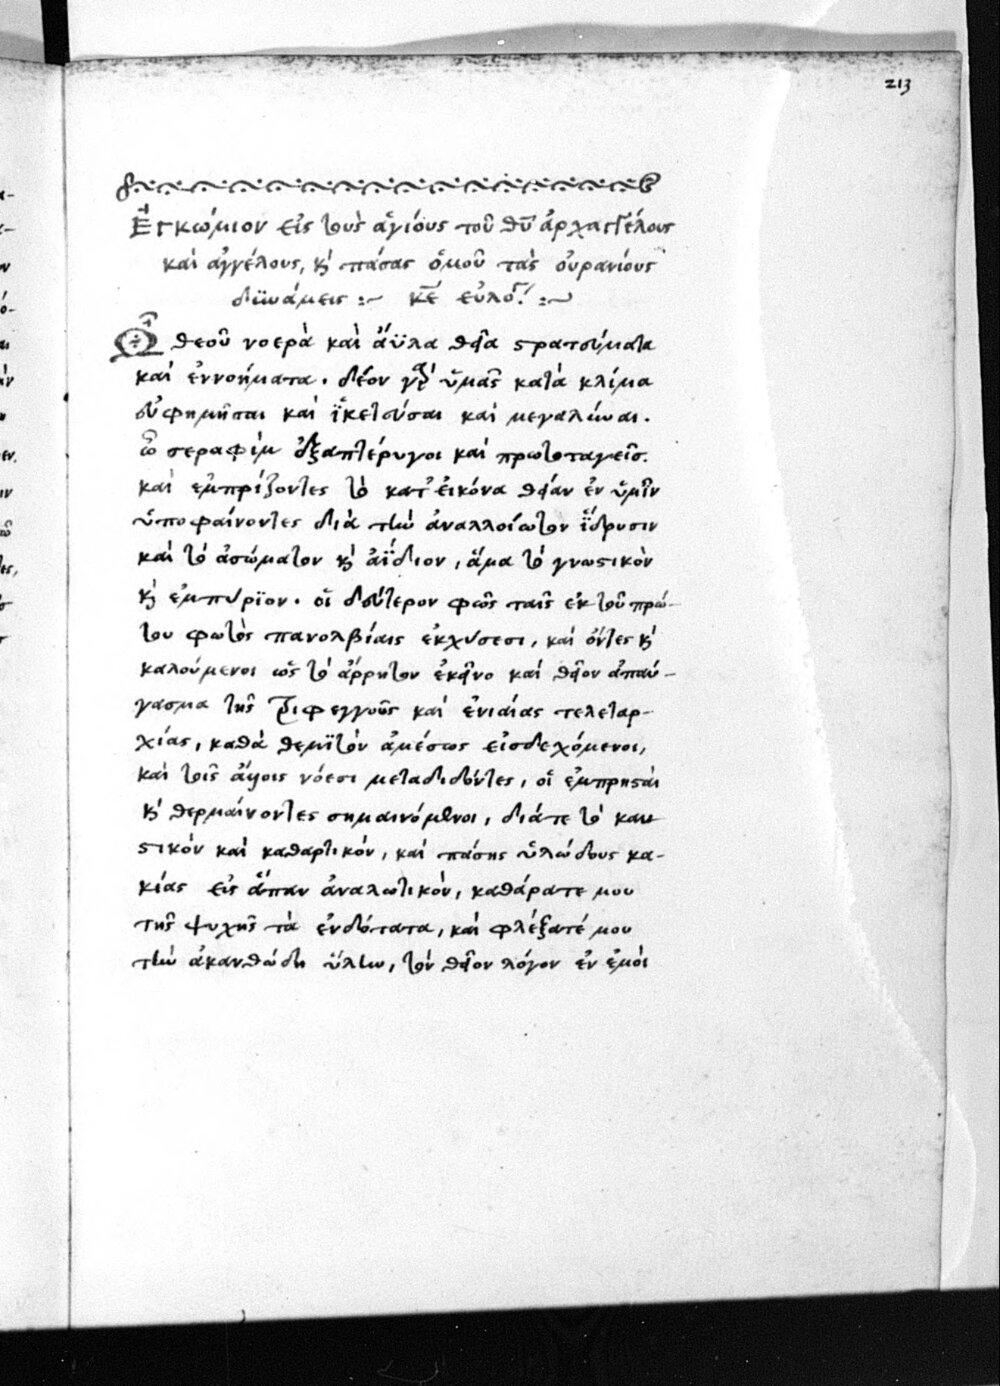 213
Ἐγκώμιον εἰς τοὺς ἁγίους τοῦ θ̅υ̅ ἀρχαγγέλους
καὶ ἀγγέλους, κ̀ πάσας ὁμοῦ τὰς οὐρανίους
δυνάμεις :~ κ̅ε̅ εὐλό
Ὦ θεοῦ νοερὰ καὶ ἄϋλα θεῖα στρατεύματα
καὶ ἐννοήματα. δέον γὰρ ὑμᾶς κατὰ κλίμα
εὐφημῆσαι καὶ ἱκετεῦσαι καὶ μεγαλύναι.
ὦ σεραφὶμ ἑξαπτέρυγοι καὶ πρωτοταγεῖς.
καὶ ἐμπρίζοντες τὸ κατ' εἰκόνα θεῖαν ἐν ὑμῖν
ὑποφαίνοντες διὰ τὴν ἀναλλοίωτον ἵδρυσιν
καὶ τὸ ἀσώματον κ̀ ἀΐδιον, ἅμα τὸ γνωστικὸν
κ̀ ἐμπύριον. οἱ δεύτερον φῶς ταῖς ἐκ τοῦ πρώ-
του φωτὸς πανολβίαις ἐκχύσεσι, καὶ ὄντες κ̀
καλούμενοι ὡς τὸ ἄρρητον ἐκεῖνο καὶ θεῖον ἀπαύ-
γασμα τῆς τριφεγγοῦς καὶ ἑνιαίας τελεταρ-
χίας, καθὰ θεμϊτὸν ἀμέσως εἰσδεχόμενοι,
καὶ τοῖς ἄλλοις νόεσι μεταδιδόντες, οἱ ἐμπρησταὶ
κ̀ θερμαίνοντες σημαινόμενοι, διάτε τὸ καυ
στικόν καὶ καθαρτικόν, καὶ πάσης ὑλώδους κα-
κίας εἰς ἅπαν ἀναλωτικόν, καθάρατε μου
τῆς ψυχῆς τὰ ἐνδότατα, καὶ φλέξατέ μου
τὴν ἀκανθώδη ὕλην, τὸν θεῖον λόγον ἐν ἐμοὶ